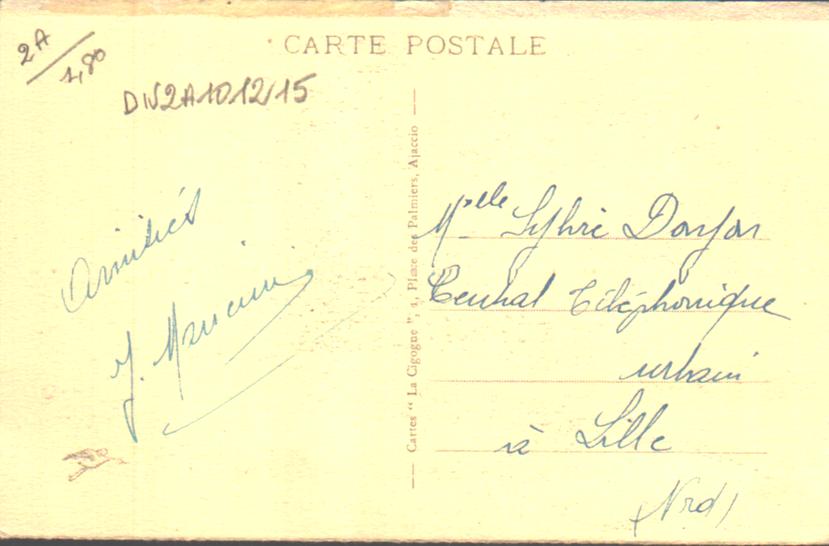 CARTE POSTALE
2A
1,80
DIV2A1012/15
Amitiés
J. Mancini
Cartes “ La Cigogne ”, 1, Place des Palmiers, Ajaccio
Melle Sylvie
Central Téléphonique
urbain
à Lille
(Nrd)